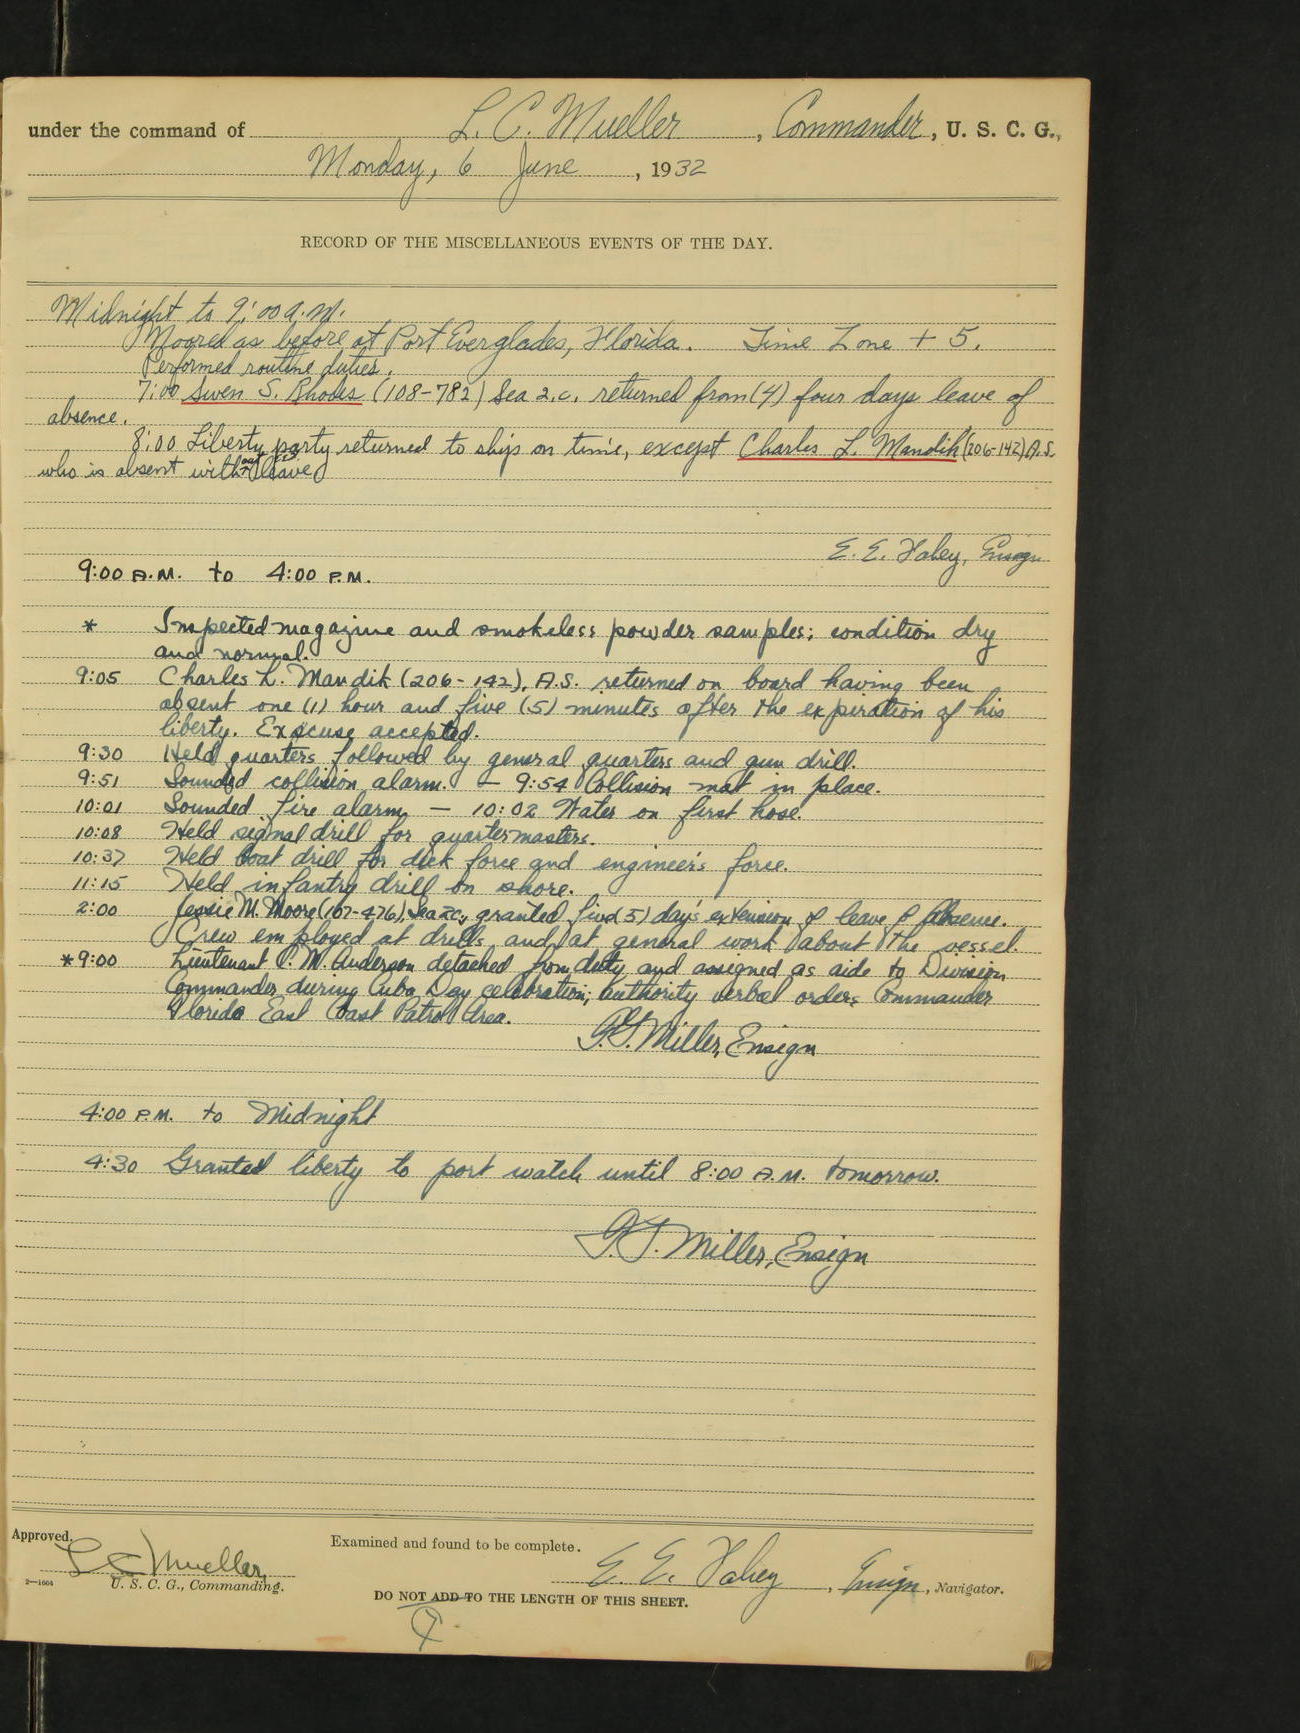 under the command of L. C. Mueller, Commander, U. S. C. G.,
Monday, 6 June, 1932
RECORD OF THE MISCELLANEOUS EVENTS OF THE DAY.
Midnight to 9:00 A.M.
Moored as before at Port Everglades, Florida. Time Zone + 5.
Performed routine duties.
7:00 Swen S. Rhodes (108-782) Sea 2.c. returned from (4) four days leave of
absence.
8:00 Liberty party returned to ship on time, except Charles L. Mandik (206-142) A.S.
who is absent without leave
E. E. Fahey, Ensign
9:00 A.M. to 4:00 P.M.
* Inspected magazine and smokeless powder samples; condition dry
and normal.
9:05 Charles L. Mandik (206-142), A.S. returned on board having been
absent one (1) hour and five (5) minutes after the expiration of his
liberty. Excuse accepted.
9:30 Held quarters followed by general quarters and gun drill.
9:51 Sounded collision alarm. — 9:54 Collision mat in place.
10:01 Sounded fire alarm — 10:02 Water on first hose.
10:08 Held signal drill for quartermasters.
10:37 Held boat drill for deck force and engineer's force.
11:15 Held infantry drill on shore.
2:00 Jessie M. Moore (107-476), Sea 2c., granted five (5) day's extension of leave of absence.
Crew employed at drills and at general work about the vessel.
*9:00 Lieutenant C. M. Anderson detached from duty and assigned as aide to Division
Commander during Cuba Day celebration; authority verbal orders Commander
Florida East Coast Patrol Area.
Miller, Ensign
4:00 P.M. to Midnight
4:30 Granted liberty to port watch until 8:00 A.M. tomorrow.
Miller, Ensign
Approved.
L C Mueller,
U. S. C. G., Commanding.
2—1664
Examined and found to be complete.
E. E. Fahey, Ensign, Navigator.
DO NOT ADD TO THE LENGTH OF THIS SHEET.